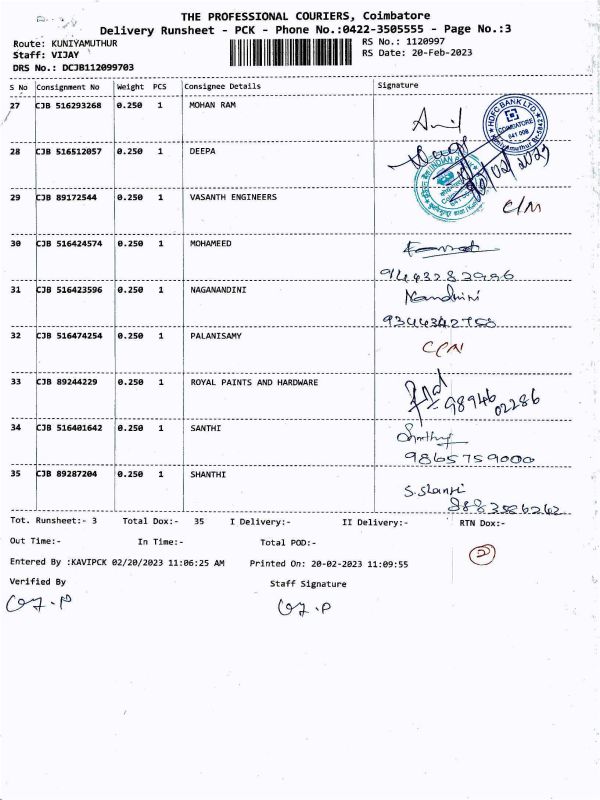 THE PROFESSIONAL COURIERS, Coimbatore
Delivery Runsheet - PCK - Phone No.:0422-3505555 - Page No.:3
Route: KUNIYAMUTHUR
RS No.: 1120997
Staff: VIJAY
RS Date: 20-Feb-2023
DRS No.: DCJB112099703
S No Consignment No Weight PCS Consignee Details Signature
27 CJB 516293268 0.250 1 MOHAN RAM
HDFC BANK LTD.
COIMBATORE
641 008
28 CJB 516512057 0.250 1 DEEPA
20/02/2023
INDIAN
29 CJB 89172544 0.250 1 VASANTH ENGINEERS
30 CJB 516424574 0.250 1 MOHAMEED
31 CJB 516423596 0.250 1 NAGANANDINI Nandhini
32 CJB 516474254 0.250 1 PALANISAMY
33 CJB 89244229 0.250 1 ROYAL PAINTS AND HARDWARE
98946
02286
34 CJB 516401642 0.250 1 SANTHI
9865759000
35 CJB 89287204 0.250 1 SHANTHI
Tot. Runsheet:- 3 Total Dox:- 35 I Delivery:- II Delivery:- RTN Dox:-
Out Time:- In Time:- Total POD:-
2
Entered By :KAVIPCK 02/20/2023 11:06:25 AM Printed On: 20-02-2023 11:09:55
Verified By Staff Signature